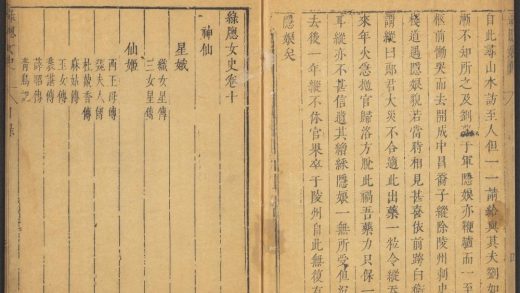 自此尋山水訪至人但一一請給與其夫劉如
漸不知所之及劉薨于軍隱娘亦鞭驢而一至
柩前慟哭而去開成中昌裔子縱除陵州刺史
棧道遇隱娘貌若當時相見甚喜依前跨白衛
謂縱曰郎君大災不合適此出藥一粒令縱吞
來年火急拋官歸洛方脫此禍吾藥力只保一
耳縱亦不甚信遺其繒綵隱娘一無所受但沉
去後一年縱不休官果卒于陵州自此無復有
隱娘矣
綠窻女史卷十
神仙
星娥
織女星傳
三女星傳
仙姬
西王母傳
夫人傳
杜蘭香傳
麻姑傳
玉女傳
傳
薛昭傳